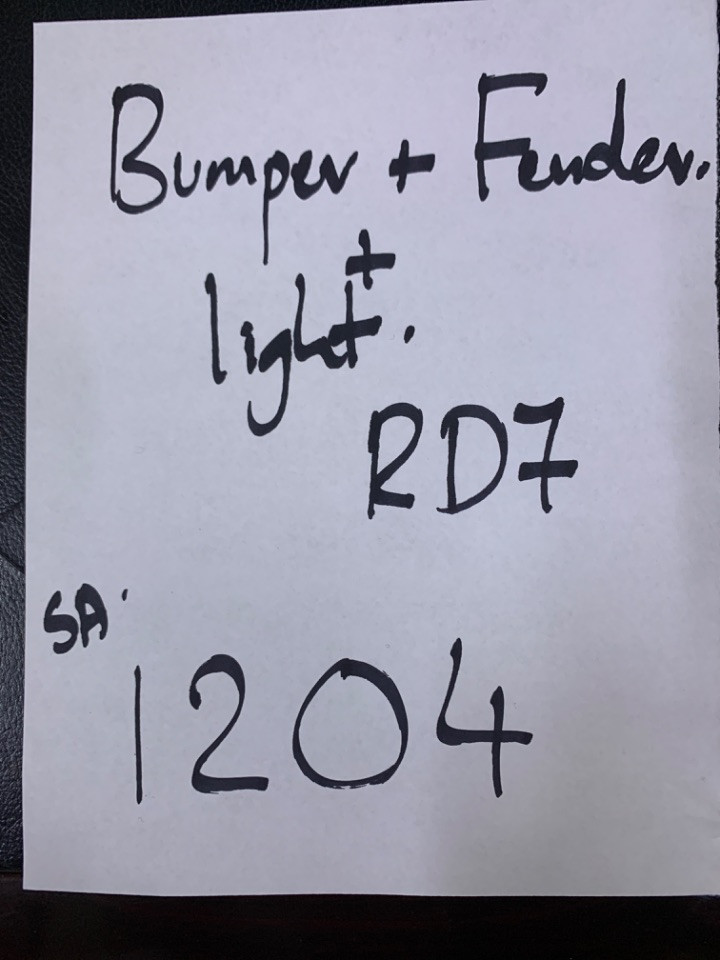 Bumper + Fender.
+
light.
RD7
SA.
1204